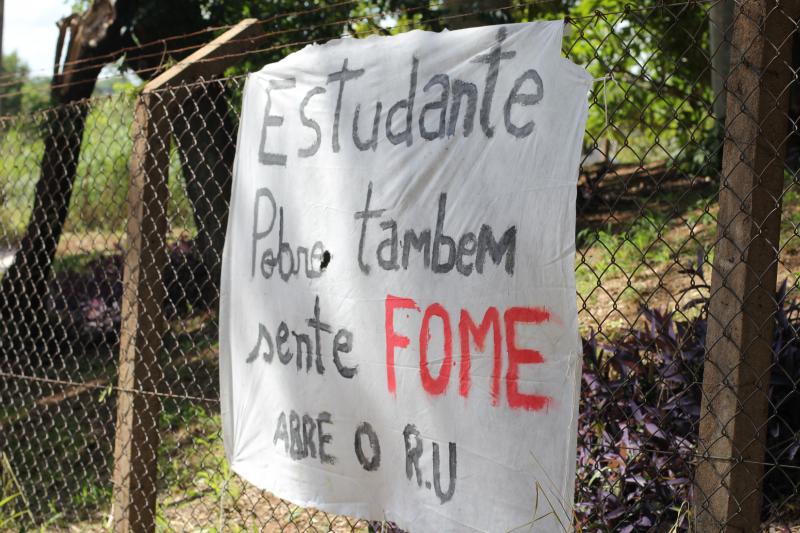 Estudante
Pobre também
sente FOME
ABRE O R.U